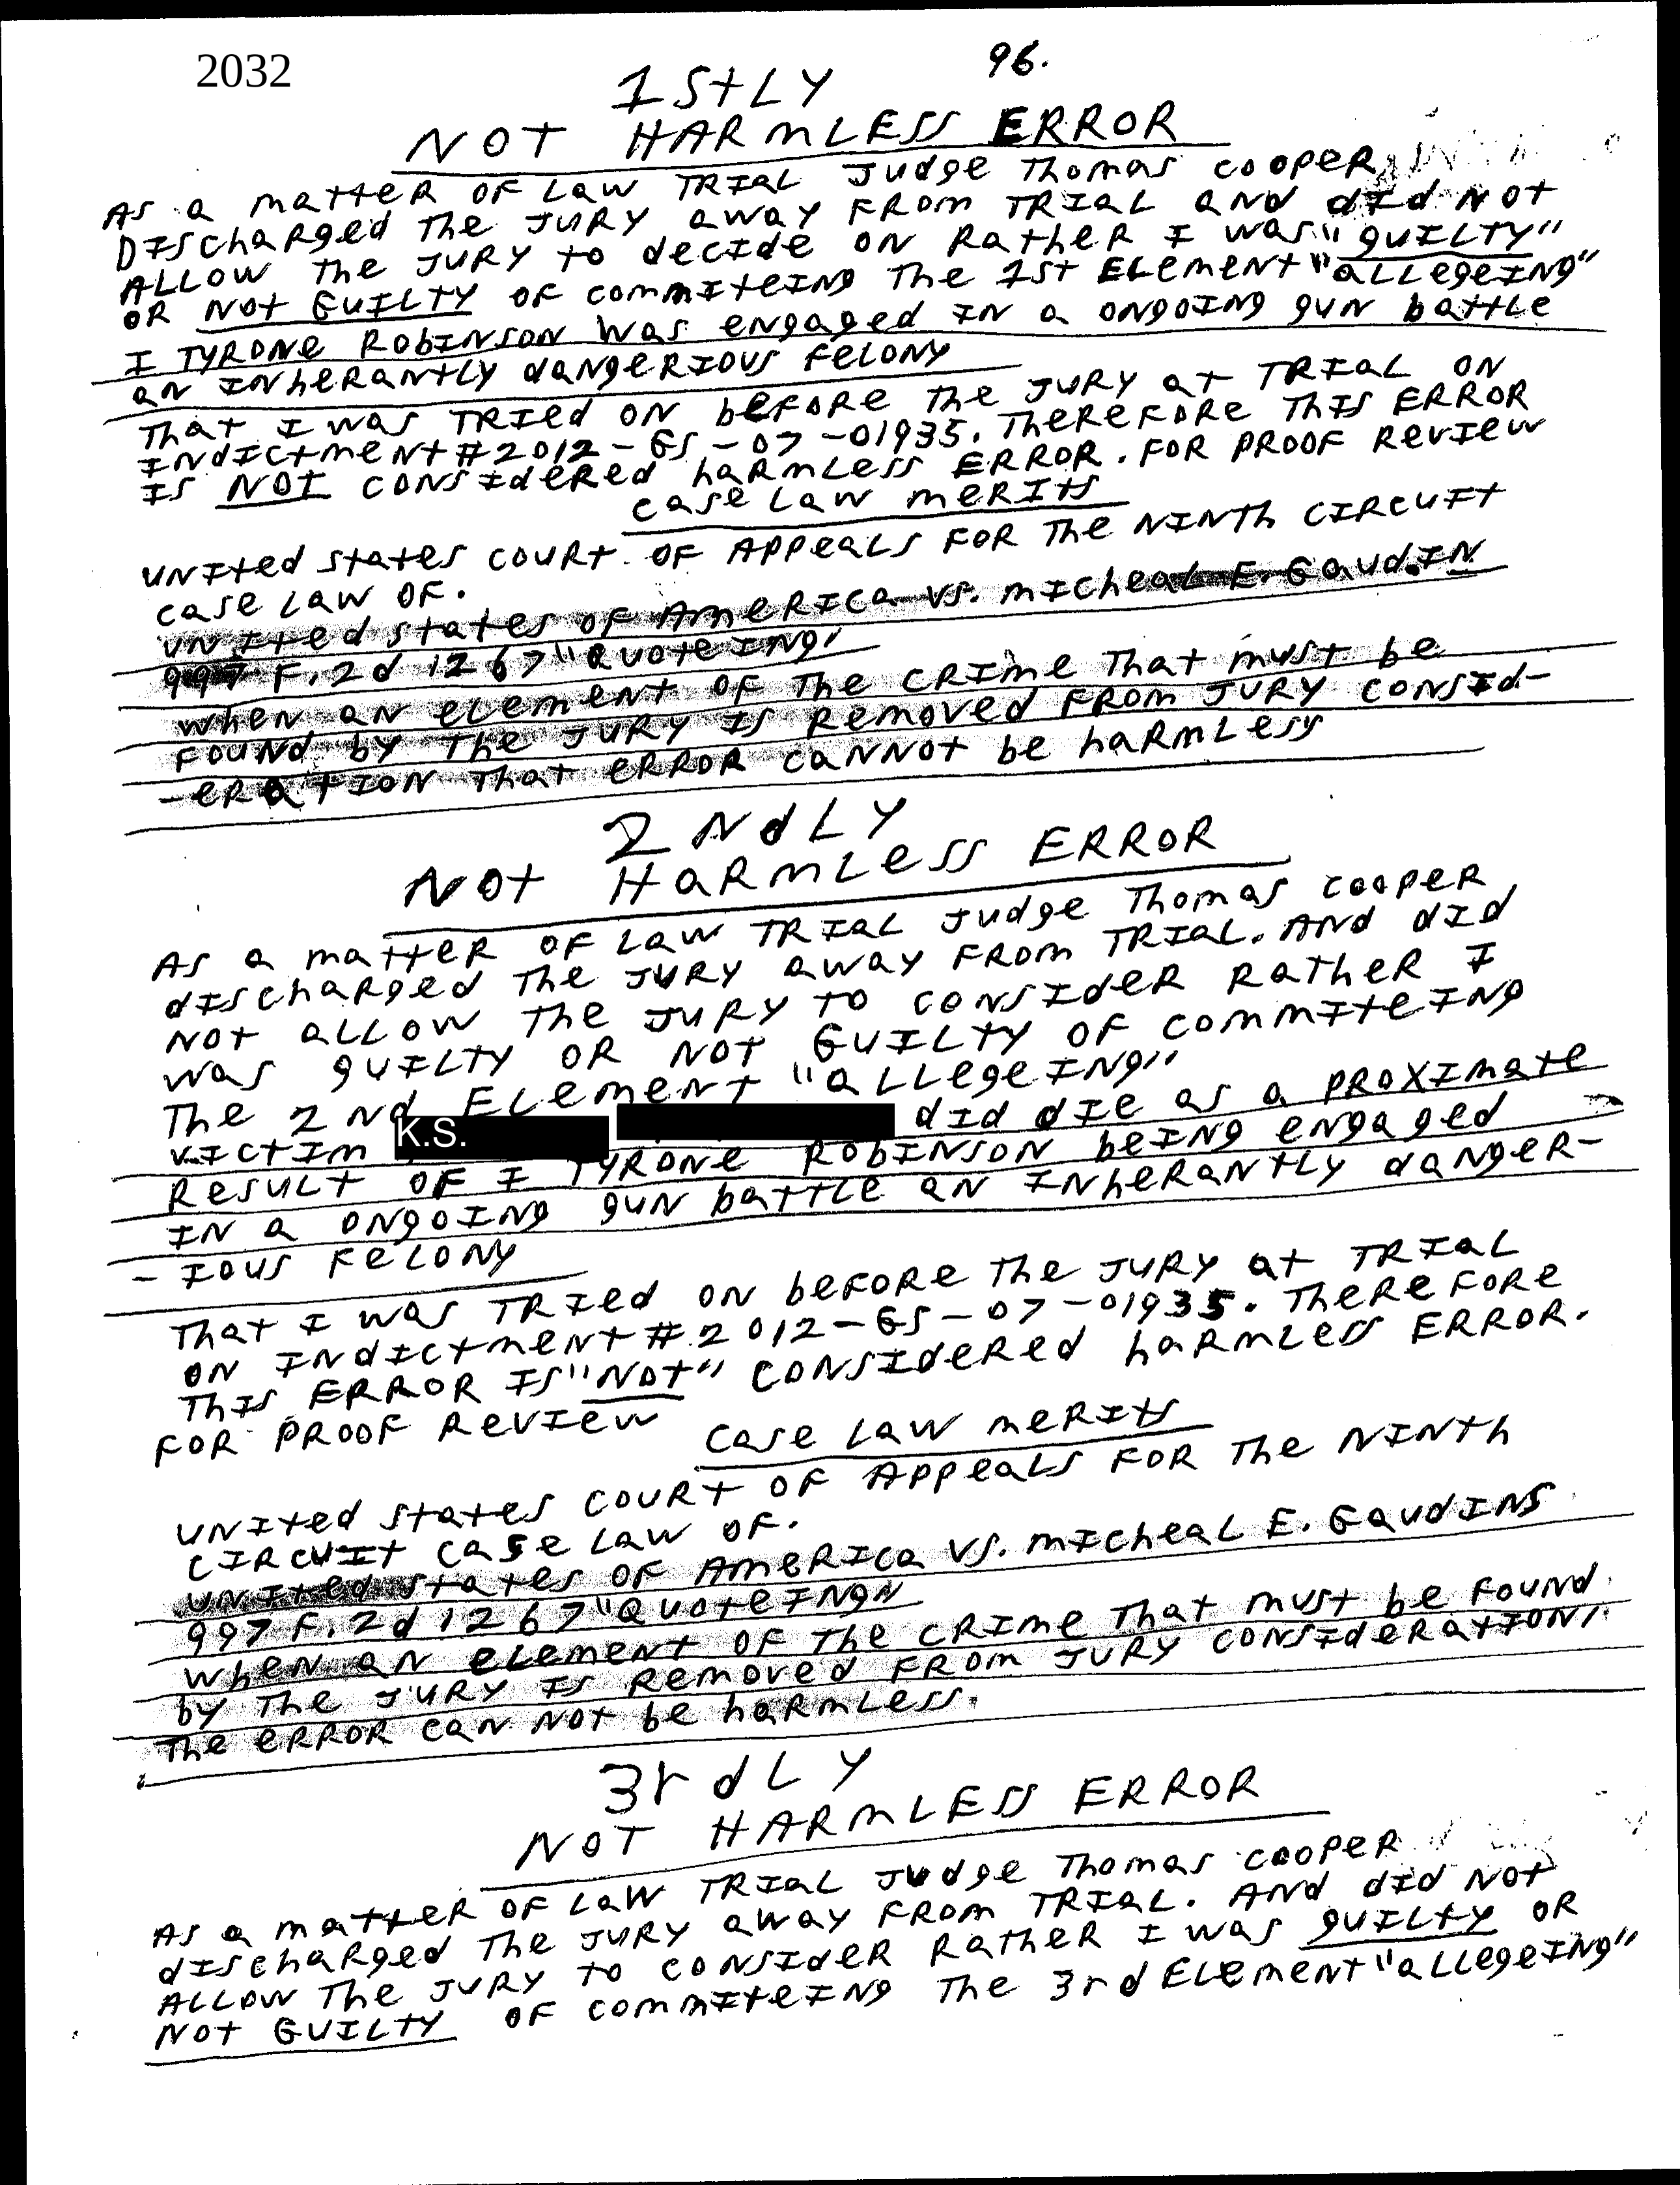 2032
96.
1StLY
NOT HARMLESS ERROR
AS a matter OF Law TRIAL Judge Thomas COOPER
DISCharged The JURY away FROM TRIAL AND did NOT
ALLOW The JURY to decide ON Rather I was "gUILTY"
OR NOT GUILTY OF commiteING The 1st Element "allegeING"
I TYRONE ROBINSON was engaged IN a ONGOING gUN battle
an INherantly dangerIOUS Felony
That I was TRIed ON before The JURY at TRIAL ON
Indictment #2012-GS-07-01935. Therefore This ERROR
IS NOT CONSIdered harmless ERROR. FOR PROOF Review
case Law merits
UNITed states COURT OF Appeals FOR The NINTH CIRCUIT
case Law OF.
UNITed states OF America VS. micheal E. Gaudin
997 F.2d 1267 "QuoteING"
When an element OF The CRIme That must be
Found by The JURY IS Removed From JURY CONSId-
-eration That ERROR cannot be harmless
2NdLY
NOt HARMLeSS ERROR
AS a matter OF Law TRIAL Judge Thomas COOPER
discharged The JURY away From TRIAL. And did
NOT allow The JURY TO CONSIder Rather I
was gUILTY OR NOT GUILTY OF CommiteING
The 2nd Element "allegeING"
VICTIm K.S. did die as a PROXImate
ResuLt OF I TYRONE RobINSON beING engaged
IN a ONGOING gUN battle an INherantly danger-
-IOUS Felony
That I was TRIed ON before The JURY at TRIAL
ON Indictment #2012-GS-07-01935. Therefore
ThIS ERROR IS "NOT" CONSIdered harmless ERROR.
FOR PROOF Review
case Law merits
UNITed states COURT OF Appeals FOR The NINTH
CIRCUIT case Law OF.
UNITed states OF America VS. micheal E. Gaudins
997 F.2d 1267 "QuoteING"
When an element OF The CRIme That must be Found
by The JURY IS Removed From JURY CONSIderation,
The ERROR can NOT be harmless.
3rdLY
NOT HARMLESS ERROR
AS a matter OF Law TRIAL Judge Thomas COOPER
discharged The JURY away From TRIAL. And did NOT
ALLOW The JURY TO CONSIder Rather I was gUILTY OR
NOT GUILTY OF commiteING The 3rd Element "allegeING"